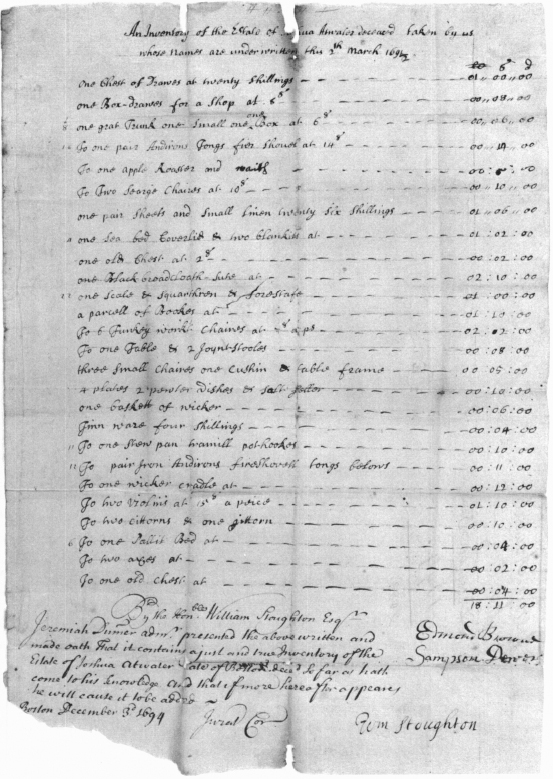 An Inventory of the Estate of Joshua Atwater deceased taken by us
whose names are underwritten this 2th March 169½
£ s d
one Chest of Drawes at twenty shillings 01 00 00
one Box-drawes for a Shop at 8s 00 08 00
one grat Trunk one Small one one Box at 6s 00 06 00
To one pair Andirons Tongs fier Shovel at 14s 00 14 00
To one apple Roaster and 00:
To Two Searge Chaires at 10s 00 10 00
one pair Sheets and Small linen twenty Six Shillings 01 06 00
one Sea bed Coverlid & two blankits at 01:02:00
one old Chest at 2s 00:02:00
one Black breadcloath Sute at 02:10:00
one Scale & Squarthron & forestafe 01:00:00
a parcell of Bookes at 01:10:00
To 6 Turkey work Chaires at ps 02:02:00
To one Table & 2 Joynt-stooles 00:08:00
three Small Chaires one Cushin & table frame 00 05:00
4 plates 2 pewter dishes & Salt 00:10:00
one baskett of wicker 00:06:00
Tinn ware four Shillings 00:04:00
To one Stew pan tramill pothookes 00:10:00
To pair Iron Andirons fireshovell tongs belows 00:11:00
To one wicker Cradle at 00:12:00
To two violins at 15s a peice 01:10:00
To two Cittorns & one gittorn 00:10:00
To one Pallit Bed at 00:04:00
To two axes at 00:02:00
To one old Chest at 00:04:00
18:11:00
By the Honble William Stoughton Esqr
Jeremiah Dummer admr presented the above written and
made oath That it contains a just and true Inventory of the
Estate of Joshua Atwater late of Boston decd So far as hath
come to his knowledge And that if more hereafter appeares
he will cause it to be added
Boston December 3d 1694 Jurat Cor
Edmond Browne
Sampson
Wm Stoughton